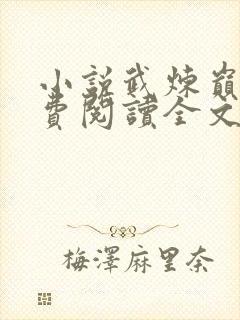 小說武煉巔
費閱讀全文
梅澤麻里奈